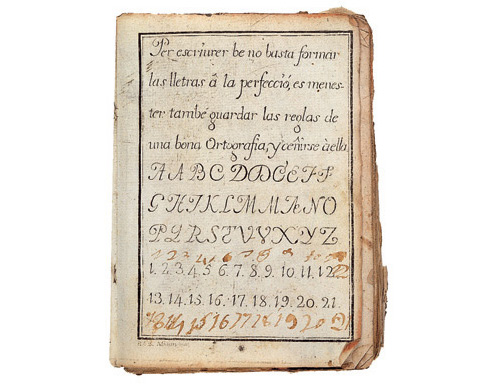 Per escriurer be no basta formar
las lletras â la perfecció, es menes-
ter també guardar las reglas de
una bona Ortografia, y ceñirse â ella.
A A B C D D Œ E F F
G H I K L M M Æ N O
P Q R S T U V X Y Z
1. 2. 3. 4. 5. 6. 7. 8. 9. 10. 11. 12
13. 14. 15. 16. 17. 18. 19. 20. 21.
15 16 17 18 19 20 21